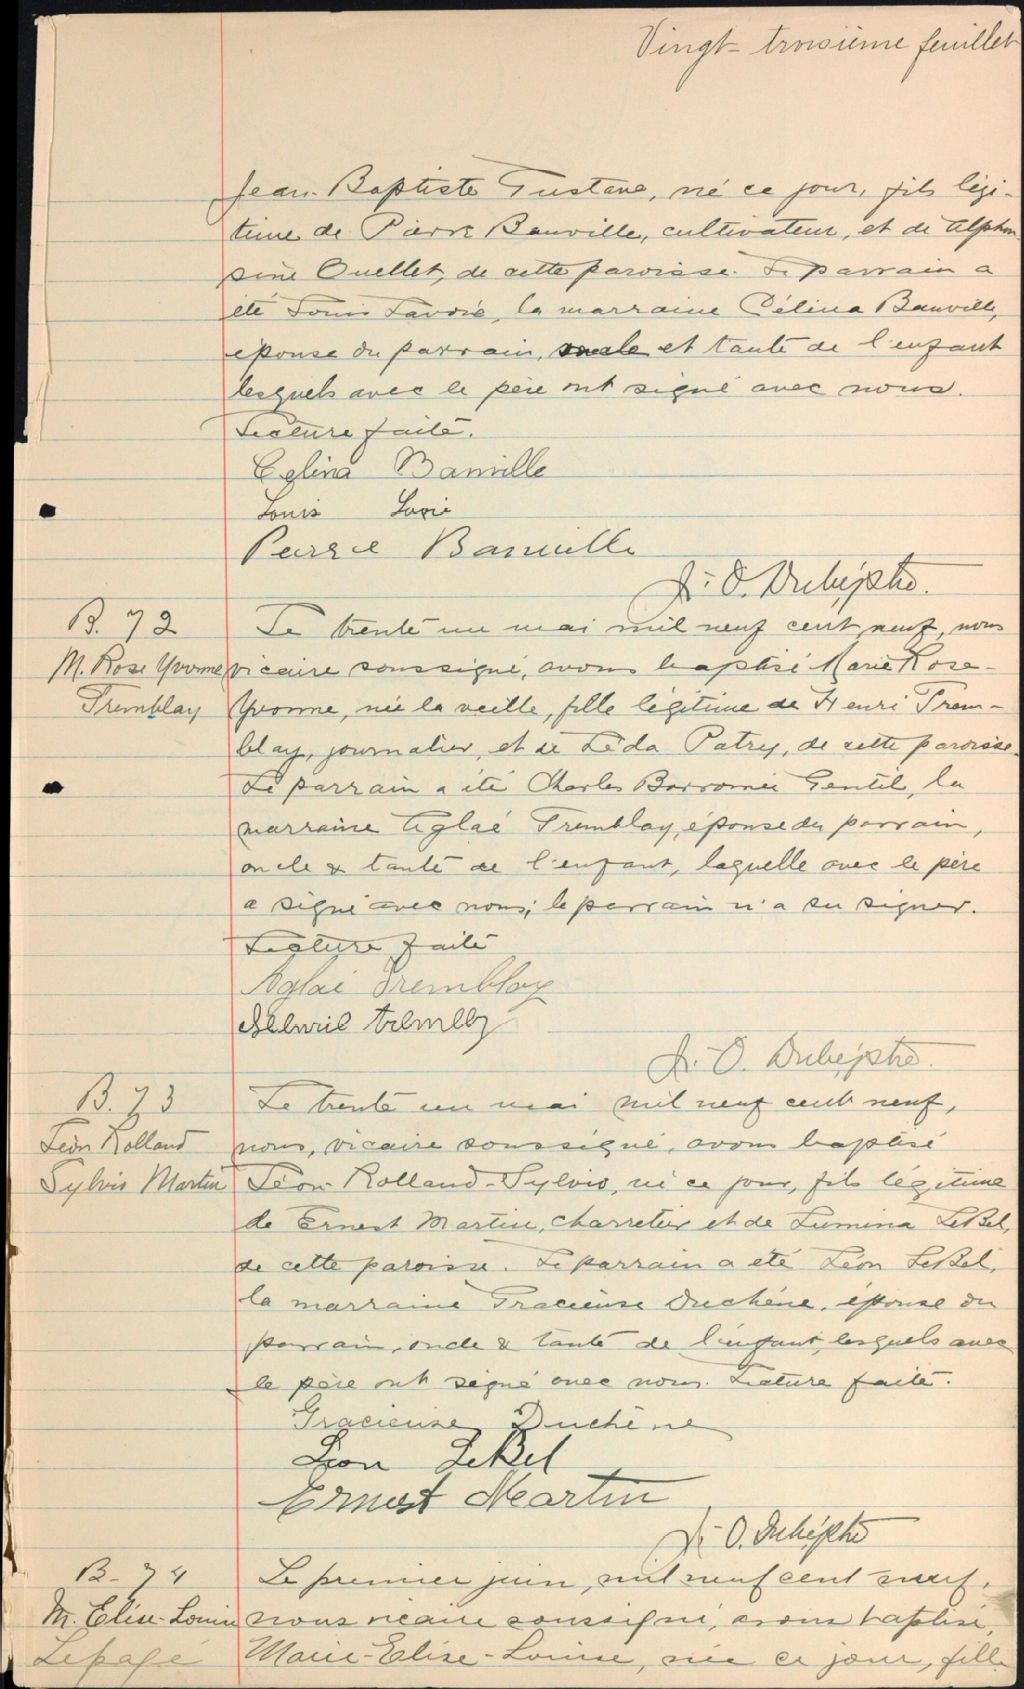 Vingt-troisième feuillet
Jean-Baptiste Gustave, né ce jour, fils légi-
time de Pierre Banville, cultivateur, et de Alphon
sine Ouellet, de cette paroisse. Le parrain a
été Louis Lavoie, la marraine Célina Banville,
épouse du parrain, oncle et tante de l'enfant
lesquels avec le père ont signé avec nous.
Lecture faite.
Celina Banville
Louis
Pierre Banville
J.-O. Dubé, ptre.
B. 72
M. Rose Yvonne
Tremblay
Le trente un mai mil neuf cent neuf, nous
vicaire soussigné, avons baptisé Marie Rose-
Yvonne, née la veille, fille légitime de Henri Trem-
blay, journalier, et de Léda Patry, de cette paroisse.
Le parrain a été Charles Borromée Gentil, la
marraine Aglaé Tremblay, épouse du parrain,
oncle & tante de l'enfant, laquelle avec le père
a signé avec nous; le parrain n'a su signer.
Lecture faite
Aglaé Tremblay
J.-O. Dubé, ptre.
B. 73
Léon Rolland
Sylvio Martin
Le trente un mai mil neuf cent neuf,
nous, vicaire soussigné, avons baptisé
Léon-Rolland-Sylvio, né ce jour, fils légitime
de Ernest Martin, charretier et de Lumina LeBel,
de cette paroisse. Le parrain a été Léon LeBel,
la marraine Gracieuse Duchène, épouse du
parrain, oncle & tante de l'enfant, lesquels avec
le père ont signé avec nous. Lecture faite.
Gracieuse Duchène
Léon LeBel
Ernest Martin
J.-O. Dubé, ptre
B-74
M. Elise-Louise
Lepage
Le premier juin, mil neuf cent neuf,
nous vicaire soussigné, avons baptisé,
Marie-Elise-Louise, née ce jour, fille